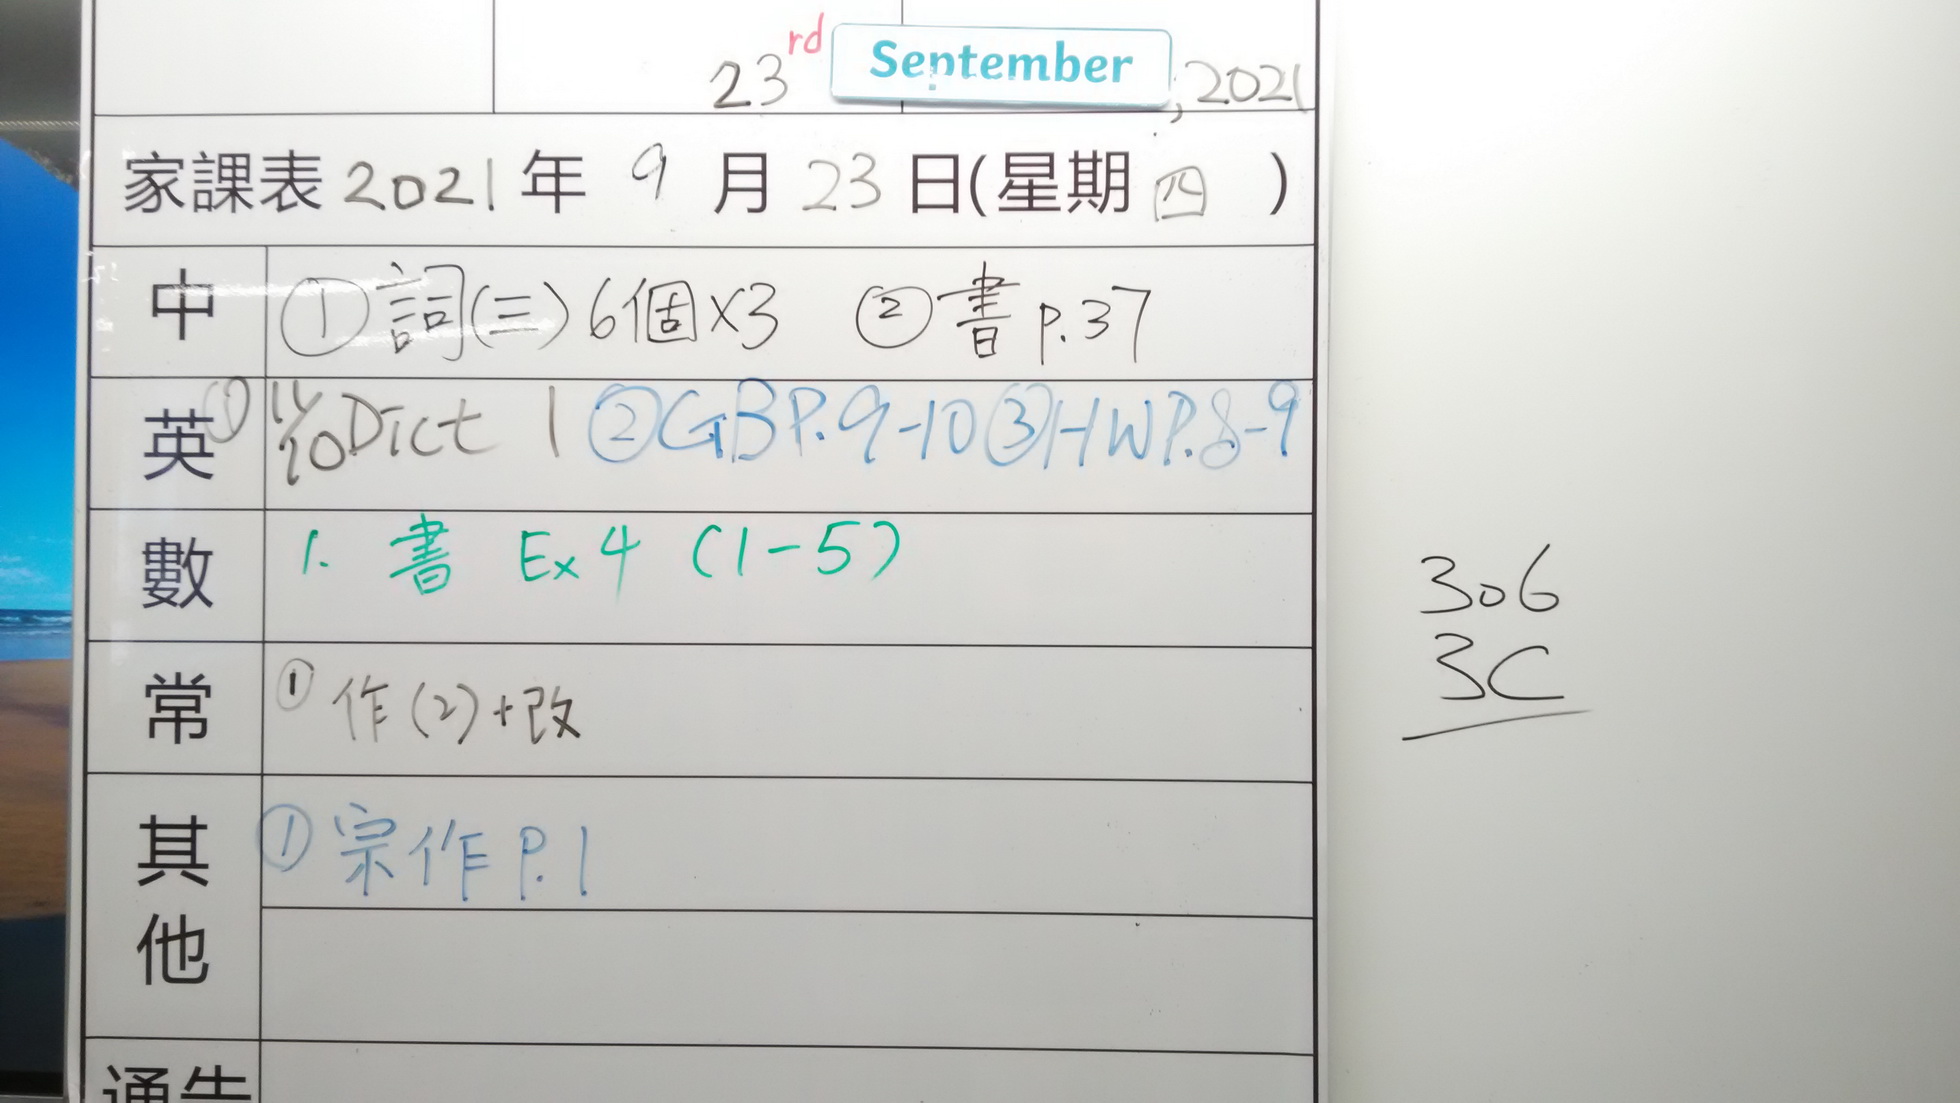 23rd September, 2021
家課表 2021 年 9 月 23 日(星期 四 )
中 ①詞(三)6個×3 ②書 P.37
英 ① 11/10 Dict 1 ②GB P.9-10 ③HW P.8-9
數 1. 書 Ex 4 (1-5)
常 ① 作(2)+改
其他 ① 宗作 P.1
通告
306
3C